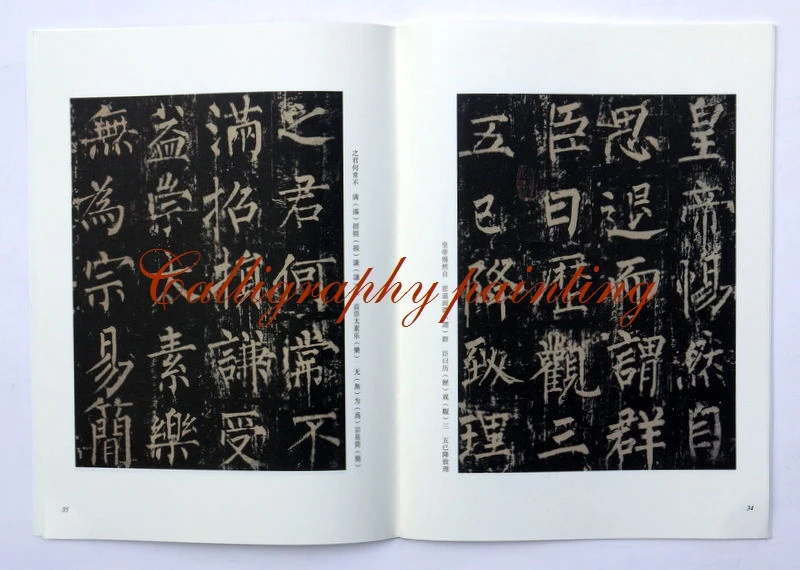 皇帝惕然自
思退而謂群
臣曰歷觀三
五已降致理
皇帝惕然自 思退而谓（謂）群 臣曰历（歷）观（觀）三 五已降致理
34
之君何常不
滿招損謙受
益崇太素樂
無為宗易簡
之君何常不 满（滿）招损（損）谦（謙）受 益崇太素乐（樂） 无（無）为（爲）宗易简（簡）
35
Calligraphy painting